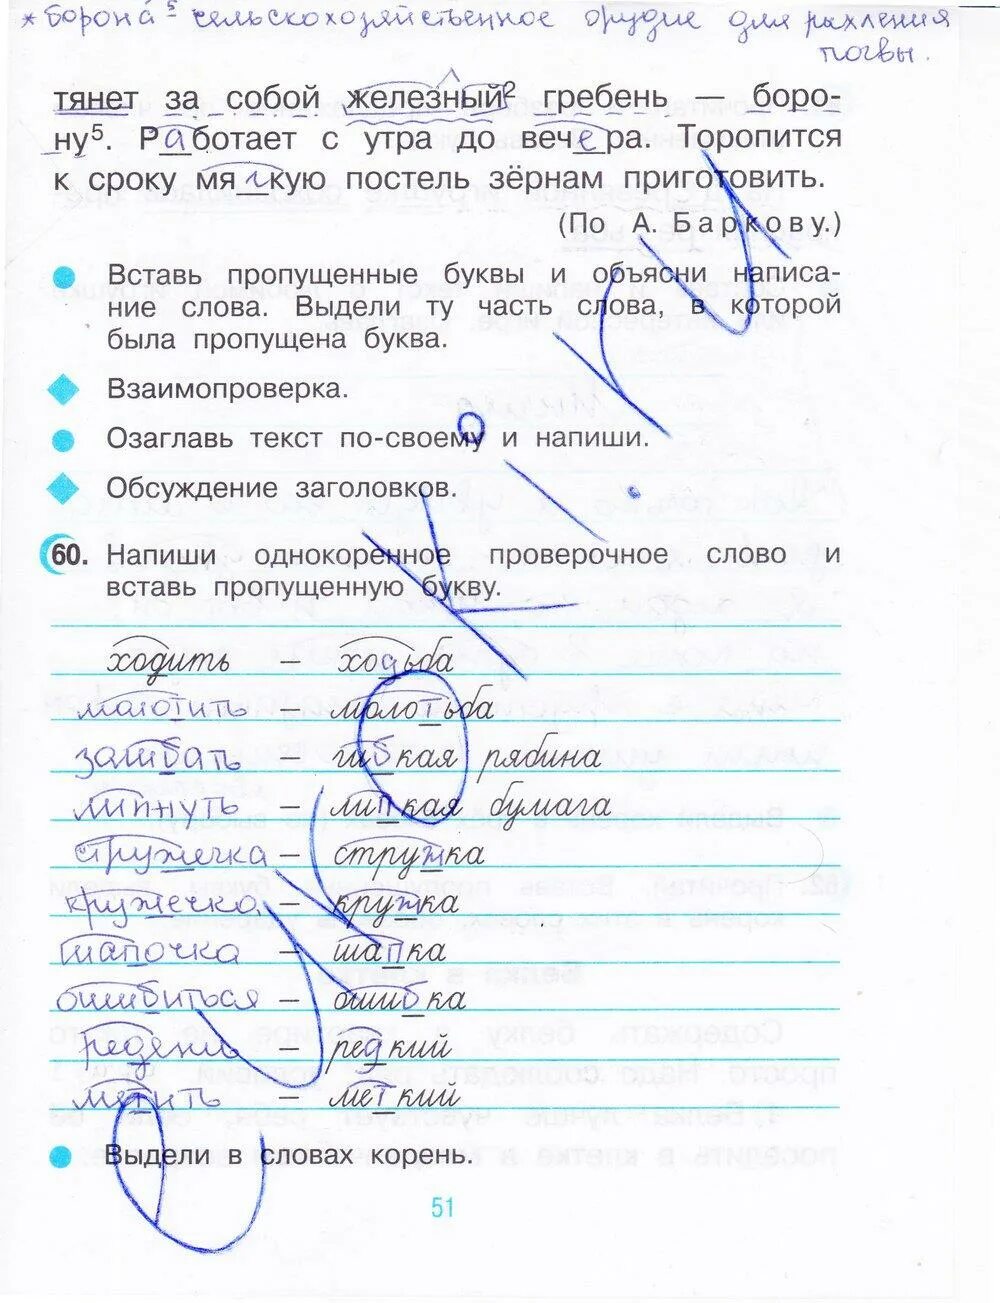 * борона⁵ - сельскохозяйственное орудие для рыхления
почвы.
тянет за собой железный² гребень — боро-
ну⁵. Работает с утра до вечера. Торопится
к сроку мягкую постель зёрнам приготовить.
(По А. Баркову.)
Вставь пропущенные буквы и объясни написа-
ние слова. Выдели ту часть слова, в которой
была пропущена буква.
Взаимопроверка.
Озаглавь текст по-своему и напиши.
Обсуждение заголовков.
60. Напиши однокоренное проверочное слово и
вставь пропущенную букву.
ходить – ходьба
молотить – молотьба
загибать – гибкая рябина
липнуть – липкая бумага
стружечка – стружка
кружечка – кружка
шапочка – шапка
ошибиться – ошибка
редень – редкий
метить – меткий
Выдели в словах корень.
51